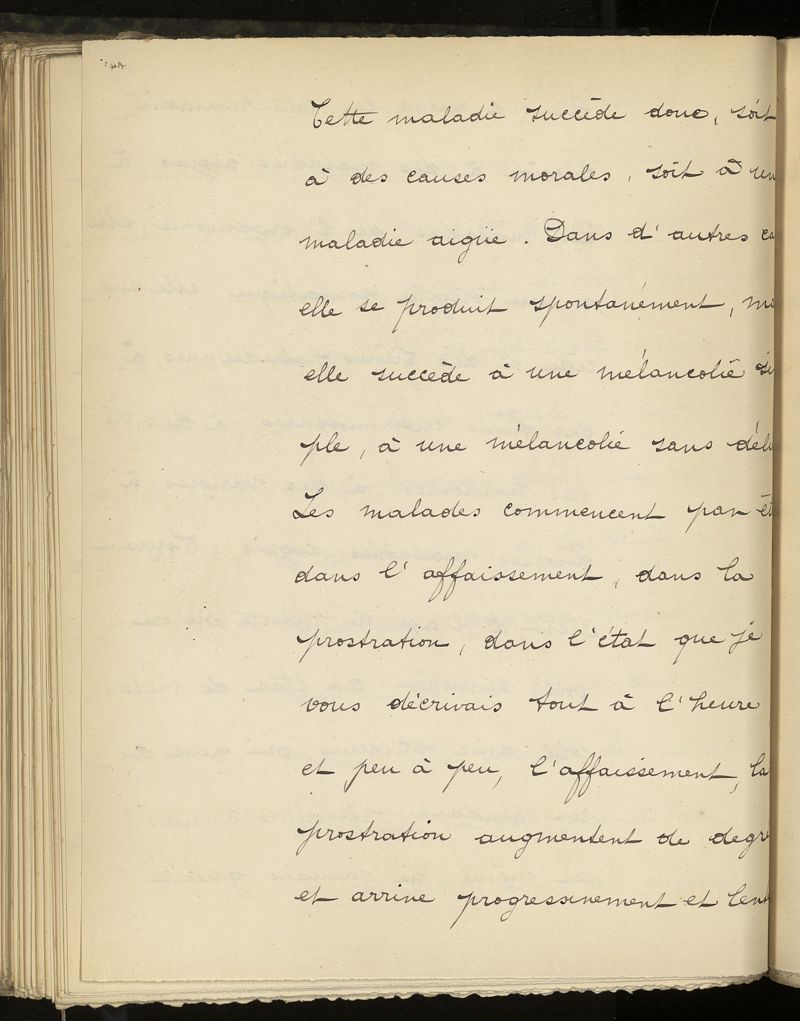 Cette maladie succède donc, soit
à des causes morales, soit à un
maladie aigüe. Dans d'autres ca
elle se produit spontanément, ma
elle succède à une mélancolie si
ple, à une mélancolie sans déli
Les malades commencent par êt
dans l'affaissement, dans la
prostration, dans l'état que je
vous décrivais tout à l'heure
et peu à peu, l'affaissement, la
prostration augmentent de degré
et arrive progressivement et lent